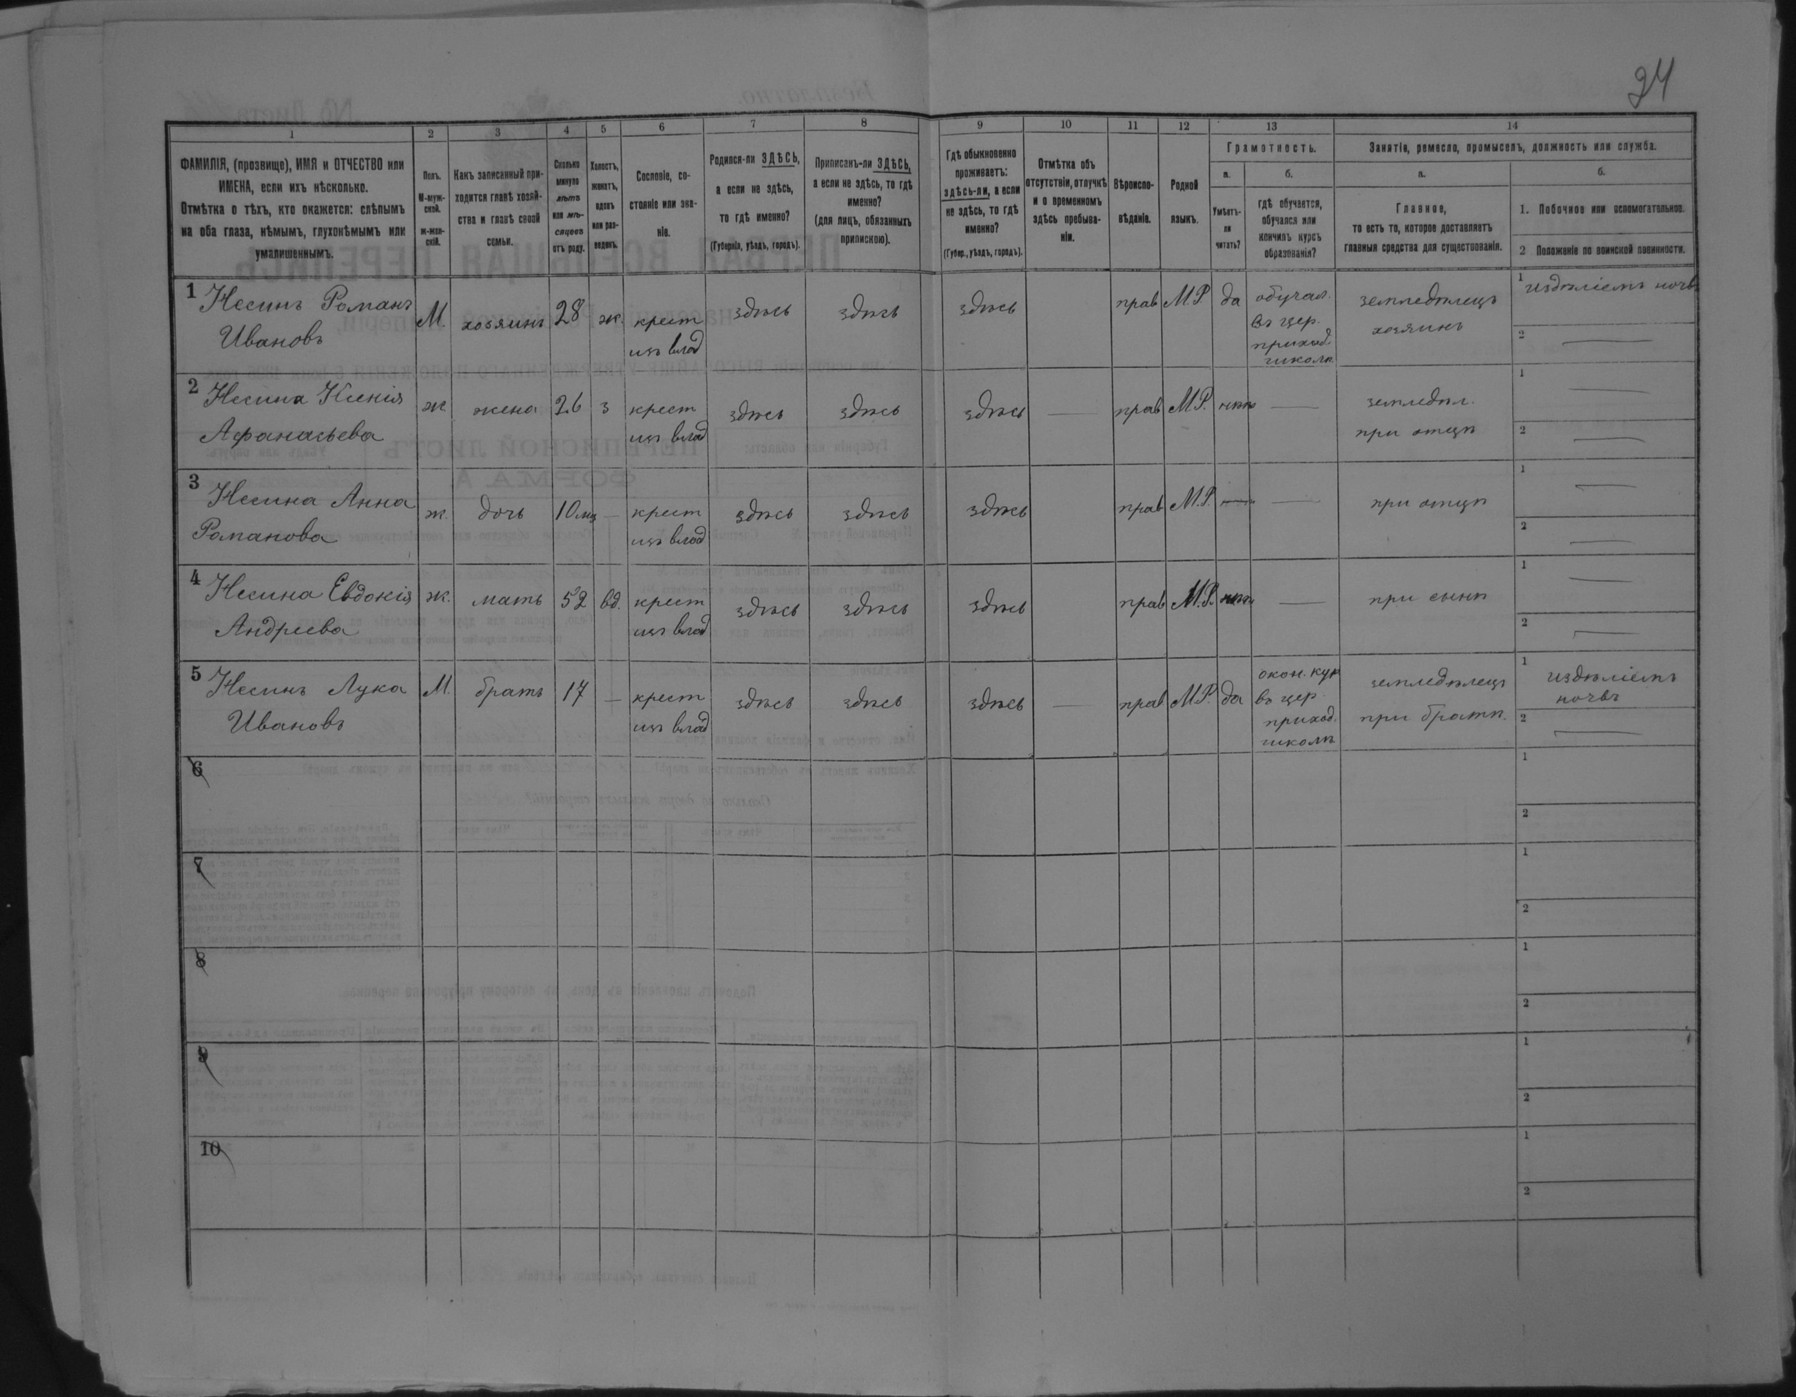 24
1 2 3 4 5 6 7 8 9 10 11 12 13 14
ФАМИЛІЯ, (прозвище), ИМЯ и ОТЧЕСТВО или
ИМЕНА, если ихъ нѣсколько.
Отмѣтка о тѣхъ, кто окажется: слѣпымъ
на оба глаза, нѣмымъ, глухонѣмымъ или
умалишеннымъ.
Полъ.
М-муж-
ской.
ж-жен-
скій.
Какъ записанный при-
ходится главѣ хозяй-
ства и главѣ своей
семьи.
Сколько
минуло
лѣтъ
или мѣ-
сяцевъ
отъ роду.
Холостъ,
женатъ,
вдовъ
или раз-
веденъ.
Сословіе, со-
стояніе или зва-
ніе.
Родился-ли ЗДѢСЬ,
а если не здѣсь,
то гдѣ именно?
(Губернія, уѣздъ, городъ).
Приписанъ-ли ЗДѢСЬ,
а если не здѣсь, то гдѣ
именно?
(для лицъ, обязанныхъ
припискою).
Гдѣ обыкновенно
проживаетъ:
здѣсь-ли, а если
не здѣсь, то гдѣ
именно?
(Губер., уѣздъ, городъ).
Отмѣтка объ
отсутствіи, отлучкѣ
и о временномъ
здѣсь пребыва-
ніи.
Вѣроиспо-
вѣданіе.
Родной
языкъ.
Грамотность.
а.
Умѣетъ-
ли
читать?
б.
гдѣ обучается,
обучался или
кончилъ курсъ
образованія?
Занятіе, ремесло, промыселъ, должность или служба.
а.
Главное,
то есть то, которое доставляетъ
главныя средства для существованія.
б.
1. Побочное или вспомогательное.
2 Положеніе по воинской повинности.
1 Несинъ Романъ М хозяинъ 28 ж. крест здѣсь здѣсь здѣсь прав МР да обучал. земледѣлецъ 1 издѣліемъ ночв
Ивановъ изъ влад въ цер. хозяинъ 2
приход.
школѣ
2 Несина Ксенія ж жена 26 з крест здѣсь здѣсь здѣсь — прав МР. нѣтъ — земледѣл. 1 —
Афанасьева изъ влад при отцѣ 2 —
3 Несина Анна ж. дочь 10 мц — крест здѣсь здѣсь здѣсь прав М.Р. — — при отцѣ 1 —
Романова изъ влад 2 —
4 Несина Евдокія ж. мать 52 вд. крест здѣсь здѣсь здѣсь прав М.Р. нѣтъ — при сынѣ 1 —
Андреева изъ влад 2 —
5 Несинъ Лука М. братъ 17 — крест здѣсь здѣсь здѣсь — прав МР. да окон. кур земледѣлецъ 1 издѣліемъ
Ивановъ изъ влад въ цер. при братѣ. ночвъ
приход. 2 —
школѣ
6 1
2
7 1
2
8 1
2
9 1
2
10 1
2